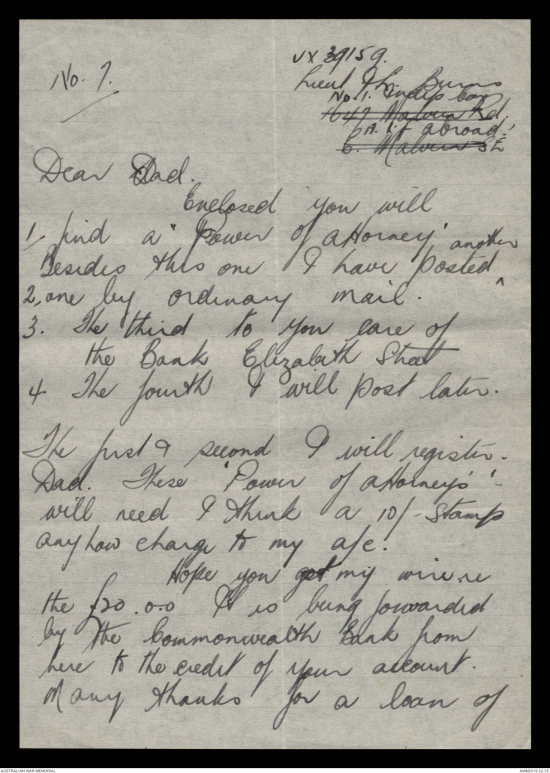 No. 7.
VX 39159.
Lieut Burns
No. 1. Indep Coy
1647 Malvern Rd,
A. I. F abroad.
6. Malvern SE
Dear Dad.
Enclosed you will
1, find a "Power of attorney'
another
Besides this one I have posted ^
2, one by ordinary mail.
3. The third to you care of
the Bank Elizabeth Street
4 The fourth I will post later.
The first & second I will register.
Dad. These 'Power of attorneys'-
will need I think a 10/- stamp
anyhow charge to my a/c.
Hope you got my wire re
the £20.0.0 It is being forwarded
by the Commonwealth Bank from
here to the credit of your account.
Many thanks for a loan of
AUSTRALIAN WAR MEMORIAL